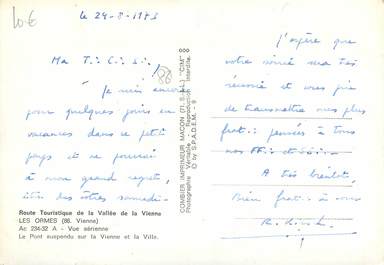 10€
le 29-8-1983
Ma T∴ C∴ s∴
86
Je suis encore
pour quelques jours en
vacances dans ce petit
pays et ne pourrai
à mon grand regret,
être des vôtres samedi.
Route Touristique de la Vallée de la Vienne
LES ORMES (86. Vienne)
Ac 234-32 A - Vue aérienne
Le Pont suspendu sur la Vienne et la Ville.
COMBIER IMPRIMEUR MACON (71. S.-&-L.) "CIM"
Photographie Véritable - Reproduction Interdite.
© by S.P.A.D.E.M. - 9
J'espère que
votre soirée sera très
réussie et vous prie
de transmettre mes plus
frat∴ pensées à tous
nos
A très bientôt,
Bien frat∴ à vous
R.